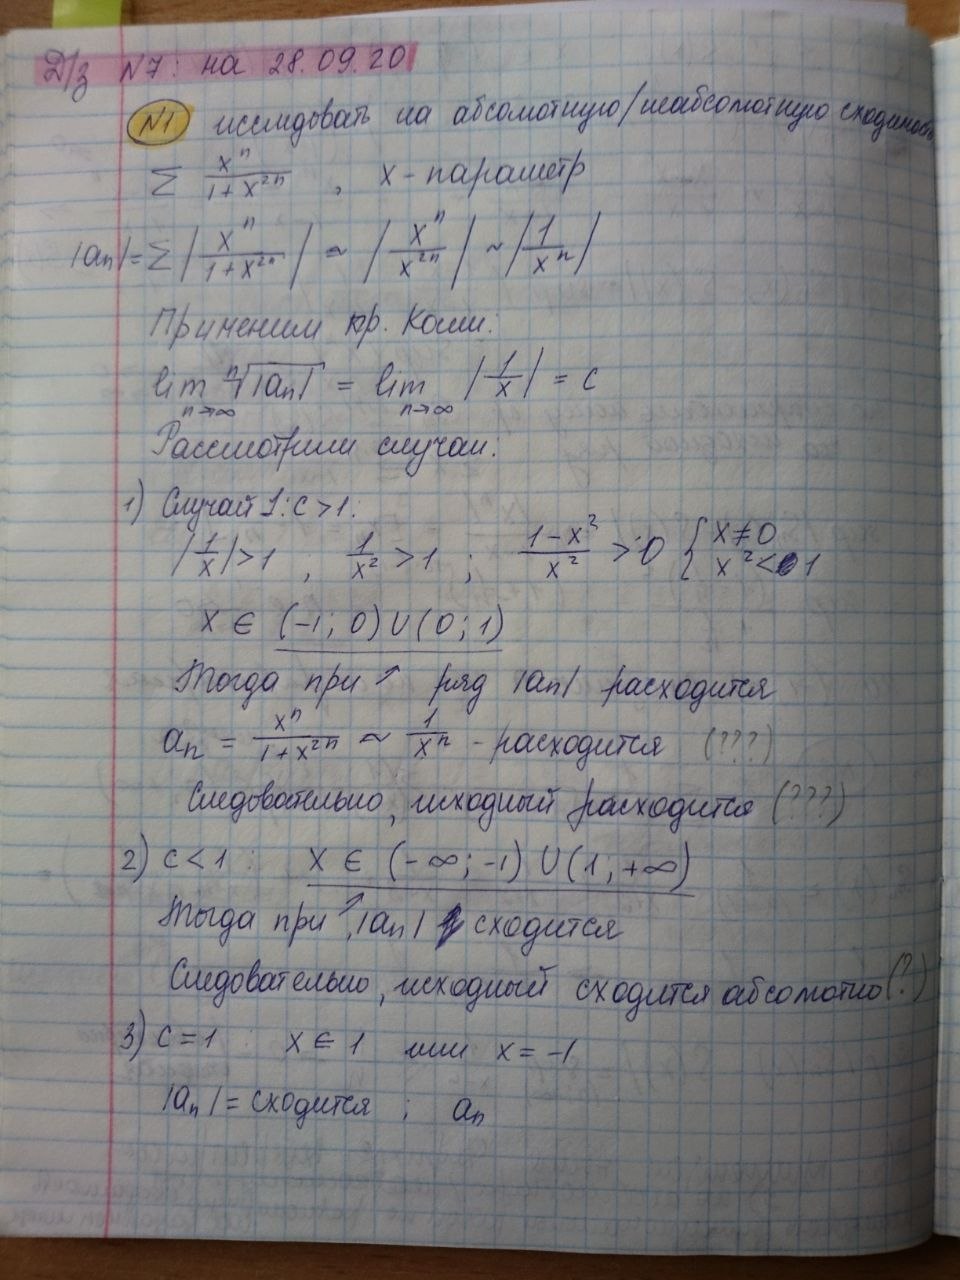 Д/з №7: на 28.09.20
№1 исследовать на абсолютную/неабсолютную сходимость
∑ xⁿ/(1+x²ⁿ) , x - параметр
|aₙ| = ∑ |xⁿ/(1+x²ⁿ)| ~ |xⁿ/x²ⁿ| ~ |1/xⁿ|
Применим пр. Коши:
lim n→∞ ⁿ√|aₙ| = lim n→∞ |1/x| = c
Рассмотрим случаи:
1) Случай 1: c > 1:
|1/x| > 1 , 1/x² > 1 ; (1-x²)/x² > 0 { x ≠ 0
x² < 1
x ∈ (-1; 0) ∪ (0; 1)
Тогда при ↑ ряд |aₙ| расходится
aₙ = xⁿ/(1+x²ⁿ) ~ 1/xⁿ - расходится (???)
Следовательно, исходный расходится (???)
2) c < 1 : x ∈ (-∞; -1) ∪ (1; +∞)
Тогда при ↑, |aₙ| сходится
Следовательно, исходный сходится абсолютно (?)
3) c = 1 : x = 1 или x = -1
|aₙ| = сходится ; aₙ